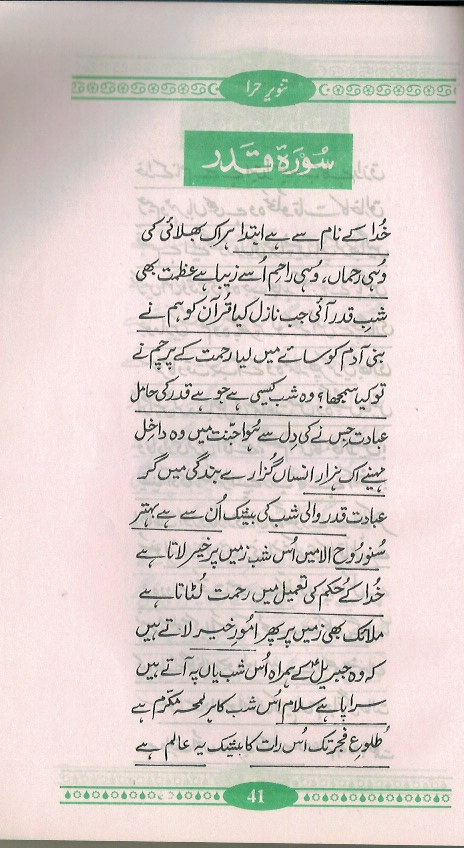 تنویرِ حرا
سُورَۃ قَدر
خُدا کے نام سے ہے ابتدا ہر اک بھلائی کی
وُہی رحماں، وُہی راحِم اُسے زیبا ہے عظمت بھی
شبِ قدر آئی جب نازل کیا قُرآن کو ہم نے
بنی آدم کو سائے میں لیا رحمت کے پرچم نے
تو کیا سمجھا؟ وہ شب کیسی ہے جو ہے قدر کی حامل
عبادت جس نے کی دِل سے ہُوا جنّت میں وہ داخِل
مہینے اک ہزار انساں گُزارے بندگی میں گر
عبادت قدر والی شب کی بیشک اُن سے ہے بہتر
سُنو رُوح الامیں اُس شب زمیں پر خیر لاتا ہے
خُدا کے حُکم کی تعمیل میں رحمت لُٹاتا ہے
ملائک بھی زمیں پر پھر اُمورِ خیر لاتے ہیں
کہ وہ جبریلؑ کے ہمراہ اُس شب یاں پہ آتے ہیں
سراپا ہے سلام اُس شب کا ہر لمحہ مکرّم ہے
طُلوعِ فجر تک اُس رات کا بیشک یہ عالم ہے
41